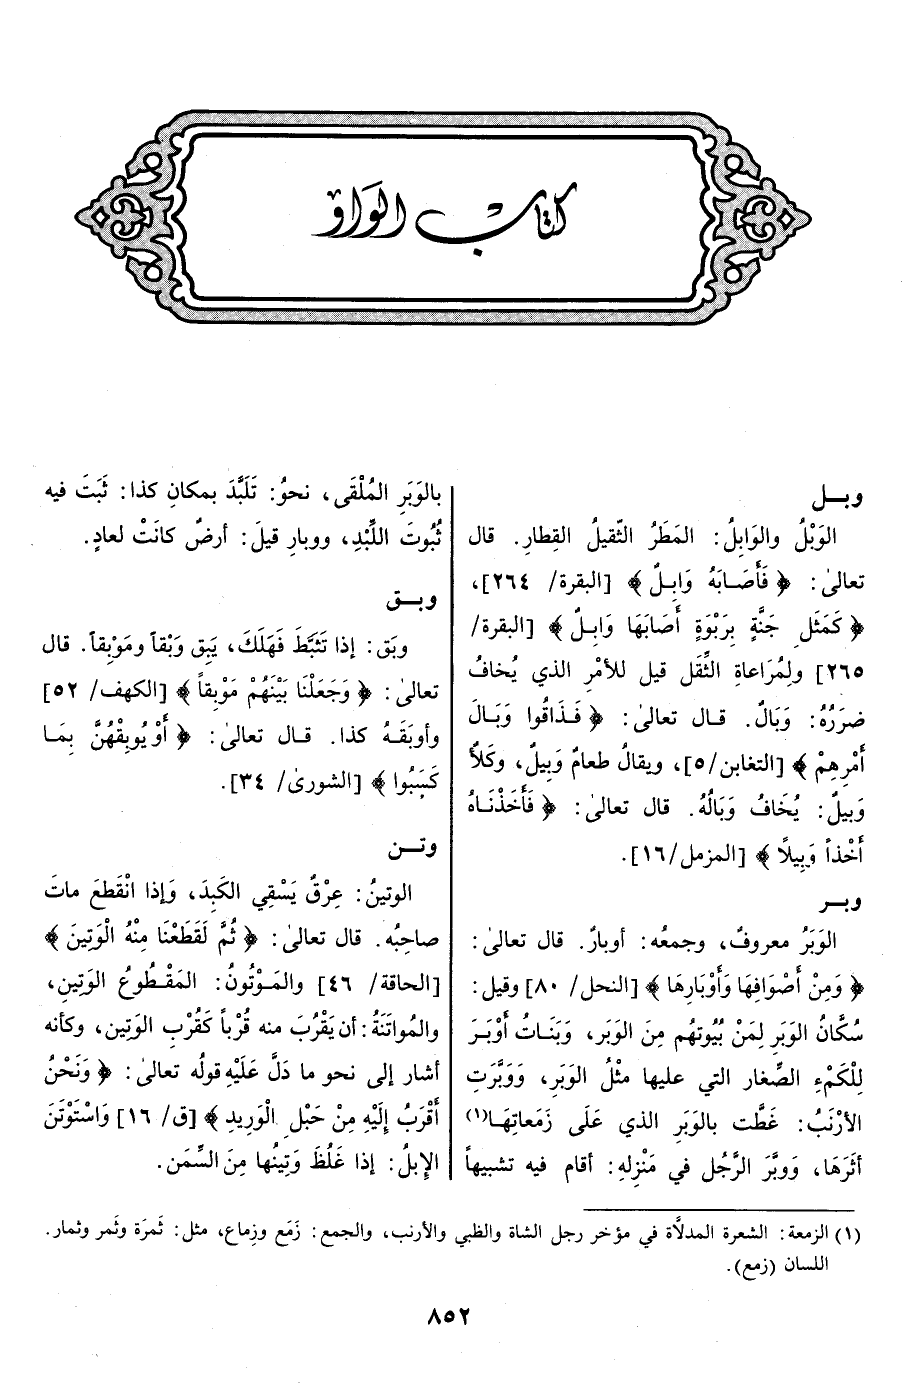 كتاب الواو
وبل
الوَبْلُ والوَابِلُ: المَطَرُ الثّقيلُ القِطارِ. قال
تعالىٰ: ﴿ فَأَصَابَهُ وَابِلٌ ﴾ [البقرة/ ٢٦٤]،
﴿ كَمَثَلِ جَنَّةٍ بِرَبْوَةٍ أَصَابَهَا وَابِلٌ ﴾ [البقرة/
٢٦٥] ولِمُرَاعاةِ الثِّقَلِ قيل للأمْرِ الذي يُخافُ
ضرَرُهُ: وَبَالٌ. قال تعالىٰ: ﴿ فَذَاقُوا وَبَالَ
أَمْرِهِمْ ﴾ [التغابن/٥]، ويقالُ طعامٌ وَبِيلٌ، وكَلأٌ
وَبِيلٌ: يُخَافُ وَبَالُهُ. قال تعالىٰ: ﴿ فَأَخَذْنَاهُ
أَخْذاً وَبِيلًا ﴾ [المزمل/١٦].
وبر
الوَبَرُ معروفٌ، وجمعُه: أوبارٌ. قال تعالىٰ:
﴿ وَمِنْ أَصْوَافِهَا وَأَوْبَارِهَا ﴾ [النحل/ ٨٠] وقيل:
سُكَّانُ الوَبَرِ لِمَنْ بُيُوتهُم مِنَ الوَبَرِ، وَبَنَاتُ أَوْبَرَ
لِلْكَمْءِ الصِّغار التي عليها مثْلُ الوَبَرِ، وَوَبَّرَتِ
الأرْنَبُ: غَطَّت بالوَبَرِ الذي عَلَى زَمَعاتِهَا(١)
أثَرَهَا، وَوبَّرَ الرَّجُل في مَنْزِلهِ: أقام فيه تشبيهاً
بالوَبَرِ المُلْقَى، نحوُ: تَلَبَّدَ بمكانِ كذا: ثَبَتَ فيه
ثُبُوتَ اللِّبْدِ، ووبارِ قيلَ: أرضٌ كانَتْ لعادٍ.
وبق
وبَق: إذا تَثَبَّطَ فَهَلَكَ، يَبِق وَبْقاً ومَوْبِقاً. قال
تعالىٰ: ﴿ وَجَعَلْنَا بَيْنَهُمْ مَوْبِقاً ﴾ [الكهف/ ٥٢]
وأوبَقَهُ كذا. قال تعالىٰ: ﴿ أَوْ يُوبِقْهُنَّ بِمَا
كَسَبُوا ﴾ [الشورىٰ/ ٣٤].
وتن
الوتينُ: عِرْقٌ يَسْقِي الكَبِدَ، وَإذا انْقَطعَ ماتَ
صاحِبُه. قال تعالىٰ: ﴿ ثُمَّ لَقَطَعْنَا مِنْهُ الْوَتِينَ ﴾
[الحاقة/ ٤٦] والمَوْتُونُ: المَقْطُوعُ الوَتِينِ،
والمُواتَنَةُ: أن يَقْرُبَ منه قُرْباً كَقُرْبِ الوَتِين، وكأنه
أشار إلى نحو ما دَلَّ عَلَيْهِ قولُه تعالىٰ: ﴿ وَنَحْنُ
أَقْرَبُ إِلَيْهِ مِنْ حَبْلِ الْوَرِيدِ ﴾ [ق/ ١٦] وَاسْتَوْتَنَ
الإبلُ: إذا غَلُظَ وَتِينُها مِنَ السِّمَن.
(١) الزمعة: الشعرة المدلّاة في مؤخر رجل الشاة والظبي والأرنب، والجمع: زَمَع وزِماع، مثل: ثَمرَة وثَمر وثمار.
اللسان (زمع).
٨٥٢